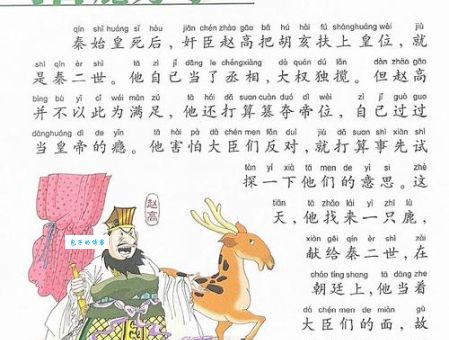 qín shǐ huáng sǐ hòu, jiān chén zhào gāo bǎ hú hài fú shànghuáng wèi, jiù
秦始皇死后，奸臣赵高把胡亥扶上皇位，就
shì qín èr shì tā zì jǐ dāng le chéngxiàng dà quán dú lǎn dàn zhào gāo
是秦二世。他自己当了丞相，大权独揽。但赵高
bìng bù yǐ cǐ wéi mǎn zú tā hái dǎ suan cuàn duó dì wèi zì jǐ guò guo
并不以此为满足，他还打算篡夺帝位，自己过过
dānghuáng dì de yǐn tā hài pà dà chén men fǎn duì jiù dǎ suan shì xiān shì
当皇帝的瘾。他害怕大臣们反对，就打算事先试
tàn yí xià tā men de yì si zhè
探一下他们的意思。这
tiān tā zhǎo lái yì zhī lù
天，他找来一只鹿，
xiàn gěi qín èr shì zài
献给秦二世，在
cháo tíng shang tā dāng zhe
朝廷上，他当着
dà chén men de miàn gù
大臣们的面，故
赵高